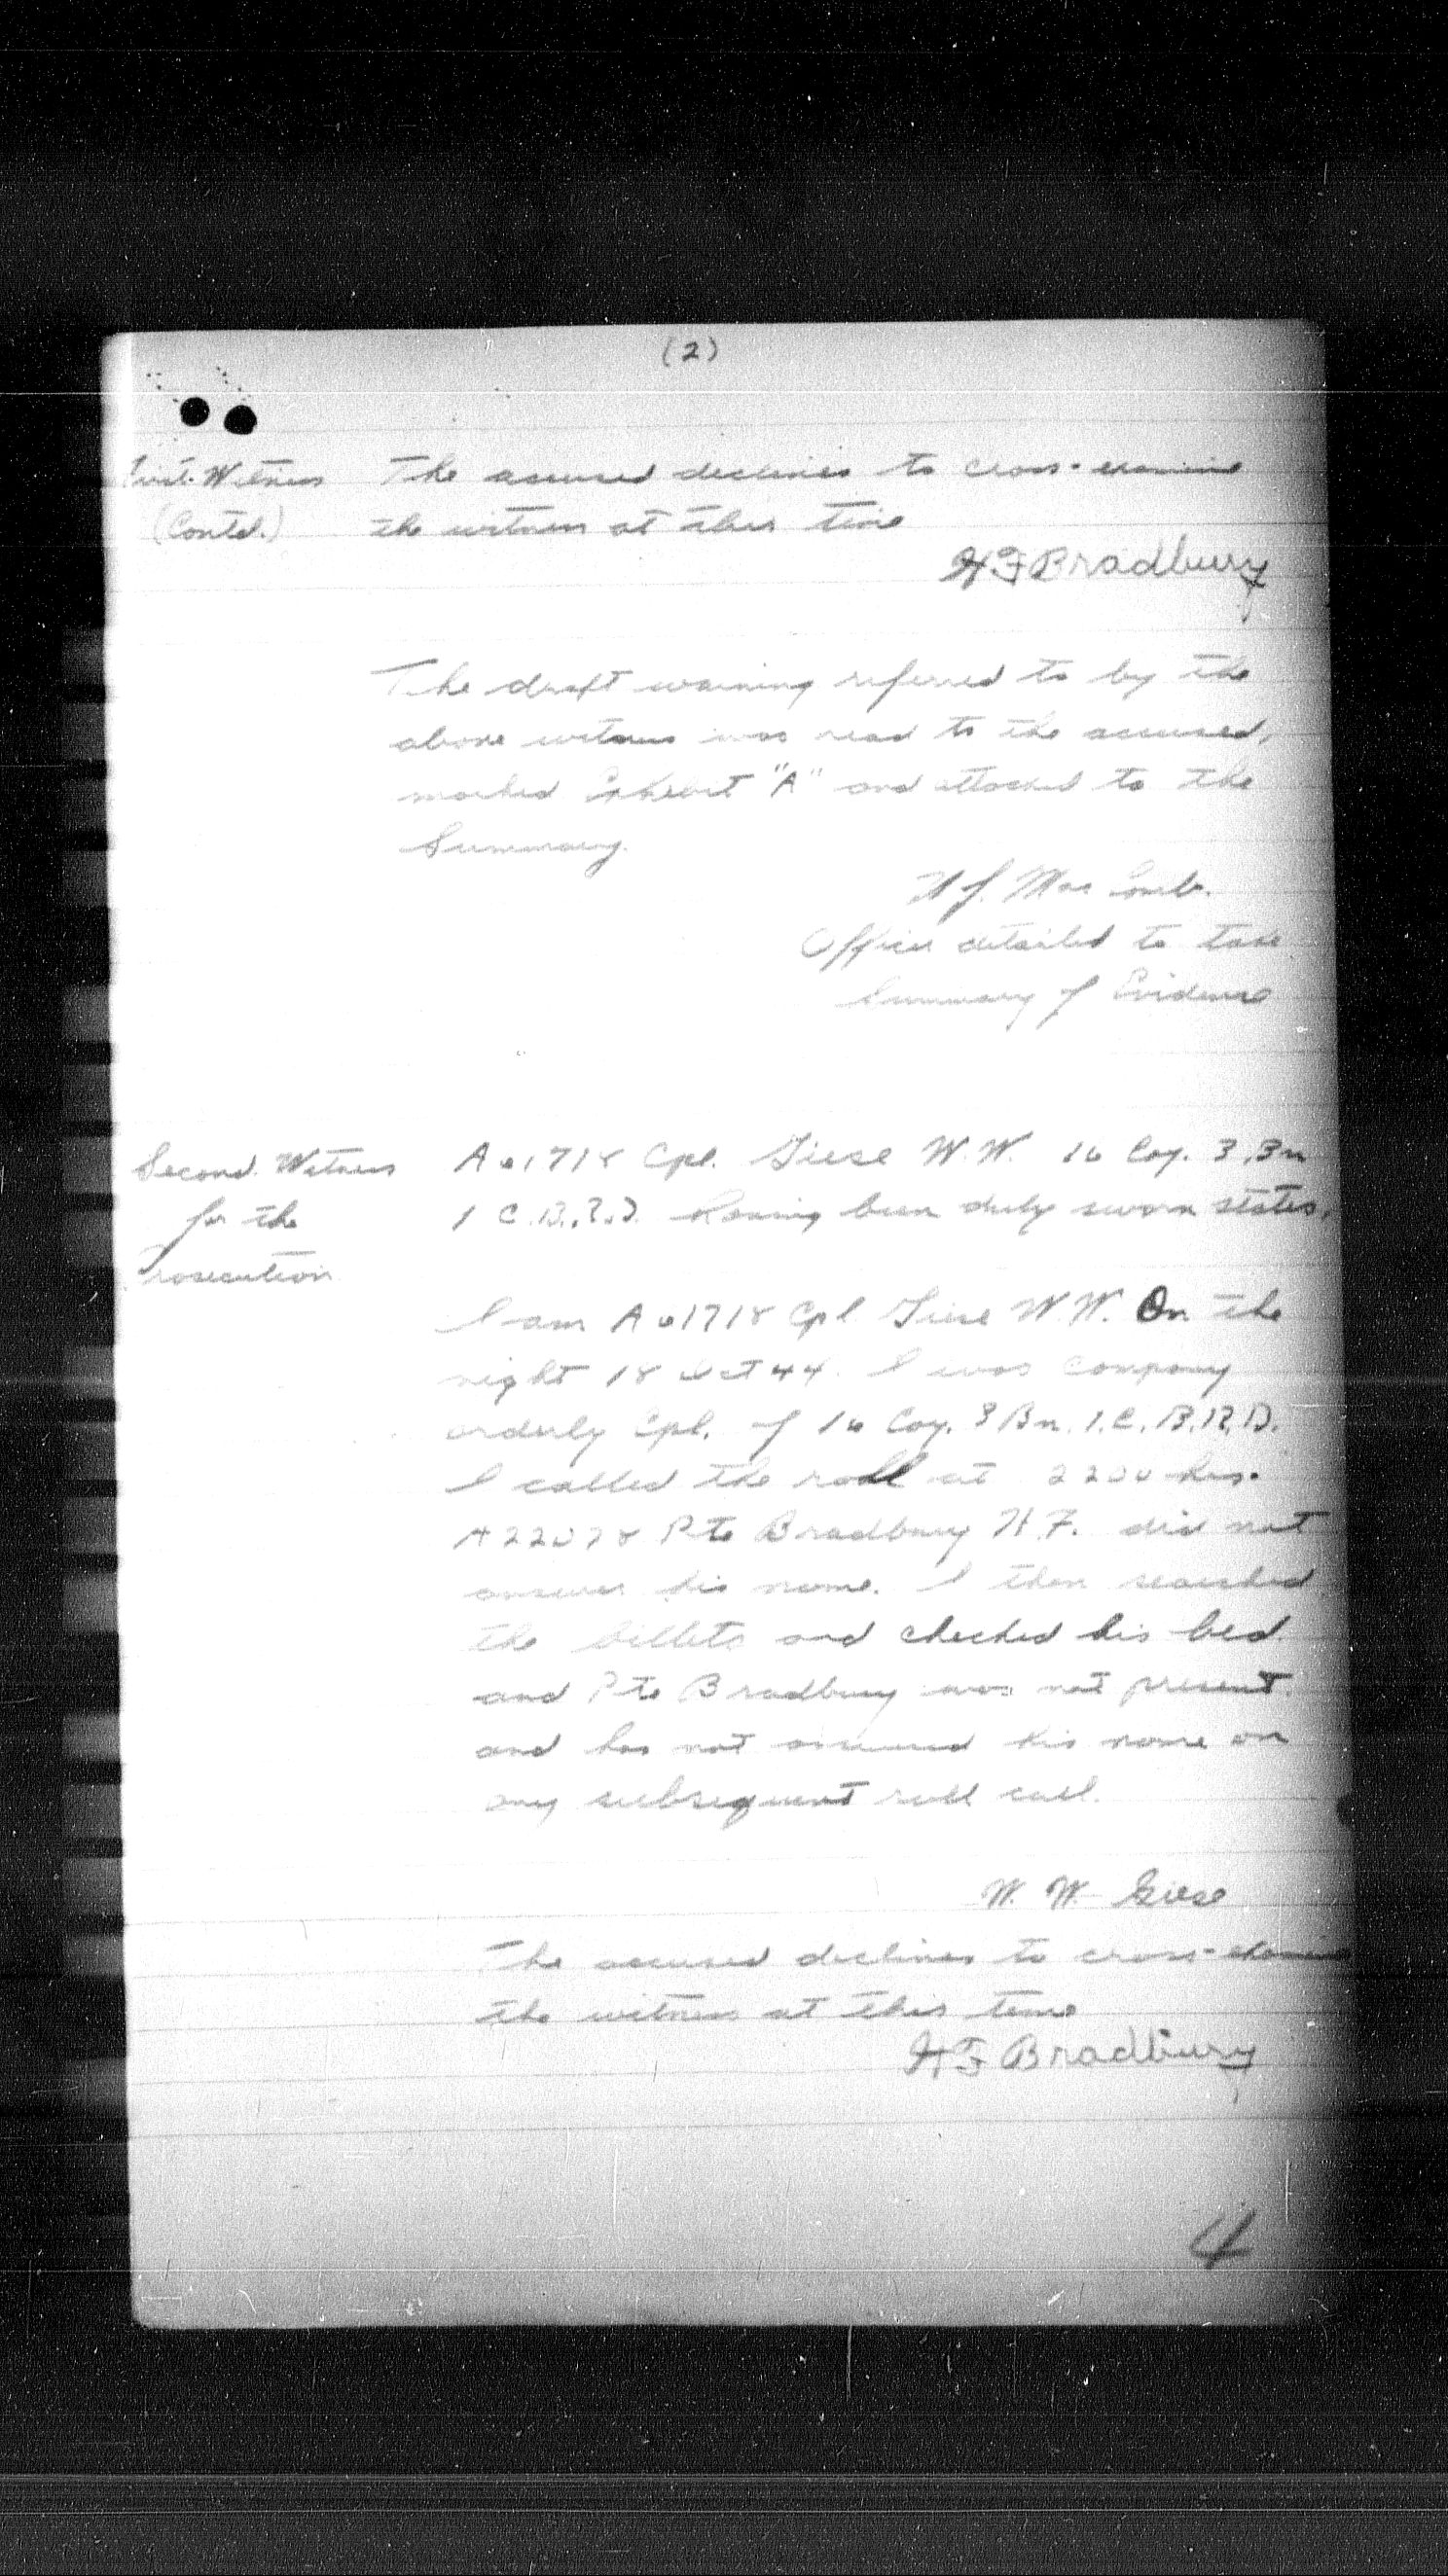 (2)
First Witness The accused declines to cross-examine
(Contd.) the witness at this time
H F Bradbury
The draft warning referred to by the
above witness was read to the accused,
marked Exhibit "A" and attached to the
Summary.
Officer detailed to take
Summary of Evidence
Second Witness A61718 Cpl. Giese W.W. 16 Coy. 3 Bn
for the 1 C.B.R.D. having been duly sworn states,
Prosecution
I am A61718 Cpl Giese W.W. On the
night 18 Oct 44. I was Company
orderly Cpl. of 16 Coy. 3 Bn. 1.C.B.R.D.
I called the roll at 2200 hrs.
A22078 Pte Bradbury H.F. did not
answer his name. I then searched
the billets and checked his bed
and Pte Bradbury was not present.
and has not answered his name on
any subsequent roll call.
W. W. Giese
The accused declines to cross-examine
the witness at this time
H F Bradbury
4